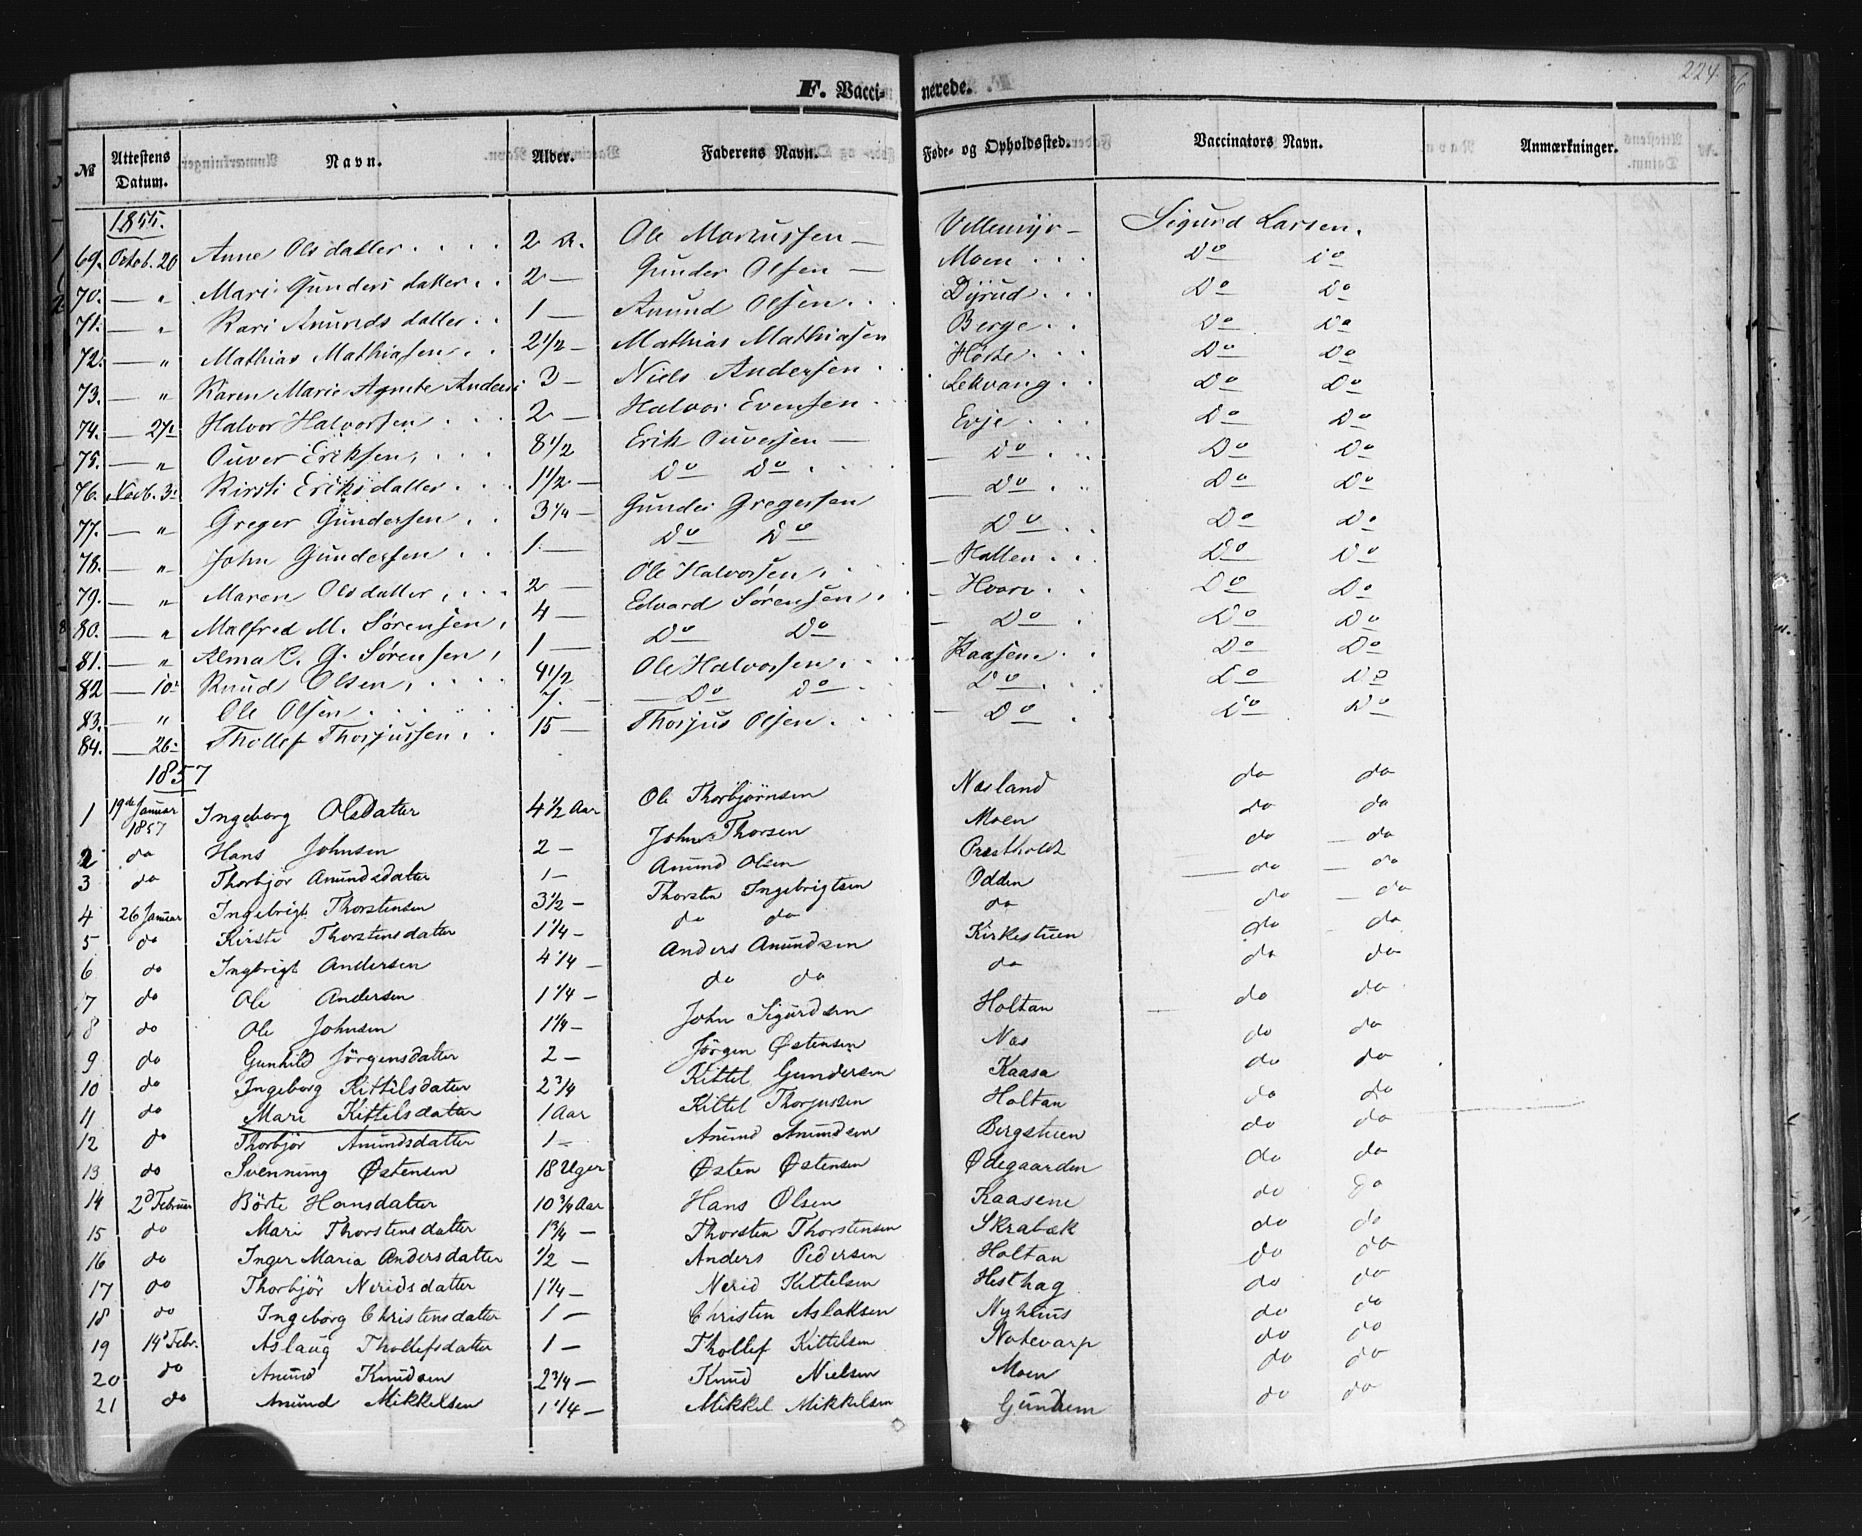 224.
F. Vaccinerede.
№ Attestens Datum. Navn. Alder. Faderens Navn. Føde- og Opholdssted. Vaccinators Navn. Anmærkninger.
1855.
69. Octob. 20 Anne Olsdatter 2 A. Ole Markussen — Villemyr — Sigurd Larsen.
70. — " Mari Gundersdatter 2 — Gunder Olsen — Moen Do Do
71. — " Kari Anundsdatter 1 — Anund Olsen Dyrud Do Do
72. — " Mathias Mathiasen 2 1/2 — Mathias Mathiasen Berge Do Do
73. — " Karen Marie Agnete Anders 3 — Niels Andersen Hørte Do Do
74. — 27: Halvor Halvorsen 2 — Halvor Evensen Lekvang Do Do
75. — " Ouver Eriksen 8 1/2 Erik Ouversen — Evje Do Do
76. Novb. 3: Kirsti Eriksdatter 1 1/2 — Do Do — Do Do Do
77. — " Greger Gundersen 3 1/4 — Gunder Gregersen — Do Do Do
78. — " John Gundersen 1 — Do Do Do Do Do
79. — " Maren Olsdatter 2 — Ole Halvorsen — Hatten Do Do
80. — " Malfred M. Sørensen 4 — Edvard Sørensen — Hvara Do Do
81. — " Alma C. G. Sørensen 1 — Do Do — Do Do Do
82 — 10: Knud Olsen 4 1/2 Ole Halvorsen Kaasene Do Do
83. — " Ole Olsen 7. — Do Do Do Do Do
84. — 26: Thollef Thorjussen 15 — Thorjus Olsen — Do Do Do
1857
1 19de Januar 1857 Ingeborg Olsdatter 4 1/2 Aar Ole Thorbjørnsen Næsland do do
2 do Hans Johnsen 2 — John Thorsen Moen do do
3 do Thorbjør Anundsdatter 1 — Anund Olsen Præstholdt do — do
4 26 Januar Ingebrigt Thorstensen 3 1/2 — Thorsten Ingebrigtsen Odden — do — do
5 do Kirste Thorstensdatter 1 1/4 — do do do do — do
6 do Ingbrigt Andersen 4 1/4 — Anders Anundsen Kirkestuen do do
7 do Ole Andersen 1 1/4 — do do do do do
8 do Ole Johnsen 1 1/4 — John Sigurdsen Holtan do do
9 do Gunhild Jørgensdatter 2 — Jørgen Østensen Næs do do
10 do Ingeborg Kittilsdatter 2 3/4 Kittel Gundersen Kaasa do do
11 do Mari Kittelsdatter 1 Aar Kittel Thorjussen Holtan do do
12 do Thorbjør Anundsdatter 1 — Anund Anundsen Bergstuen do do
13 do Svennung Østensen 18 Uger Østen Østensen Ødegaarden do do
14 2d Februar Börte Hansdatter 10 3/4 Aar Hans Olsen Kaasene do do
15 do Mari Thorstensdatter 1 3/4 — Thorsten Thorstensen Skrabæk do do
16 do Inger Maria Andersdatter 1/2 — Anders Pedersen Holtan do do
17 do Thorbjør Neridsdatter 1 1/4 — Nerid Kittelsen Hesthag do do
18 do Ingeborg Christensdatter 1 — Christen Aslaksen Nyhuus do do
19 14d Febr. Aslaug Thollefsdatter 1 — Thollef Kittelsen Notevarp do do
20 do Anund Knudsen 2 3/4 — Knud Nielsen Moen do do
21 do Anund Mikkelsen 1 1/4 — Mikkel Mikkelsen Gundem do do